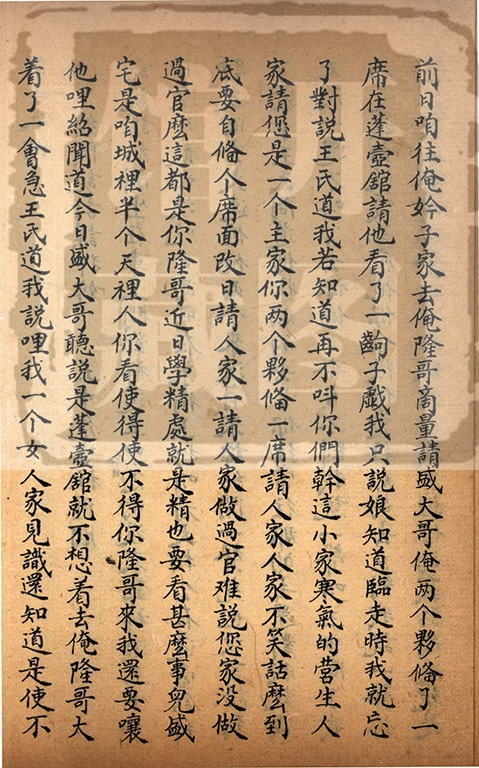 前日咱往俺妗子家去俺隆哥商量請盛大哥俺两个夥備了一
席在蓬壺舘請他看了一齣子戲我只說娘知道臨走時我就忘
了對說王氏道我若知道再不呌你們幹這小家寒氣的营生人
家請您是一个主家你两个夥備一席請人家人家不笑話麽到
底要自備个席面改日請人家一請人家做過官难說您家没做
過官麽這都是你隆哥近日學精處就是精也要看甚麽事兒盛
宅是咱城裡半个天裡人你看使得使不得你隆哥來我還要嚷
他哩紹聞道今日盛大哥聽說是蓬壺舘就不想着去俺隆哥大
着了一會急王氏道我說哩我一个女人家見識還知道是使不